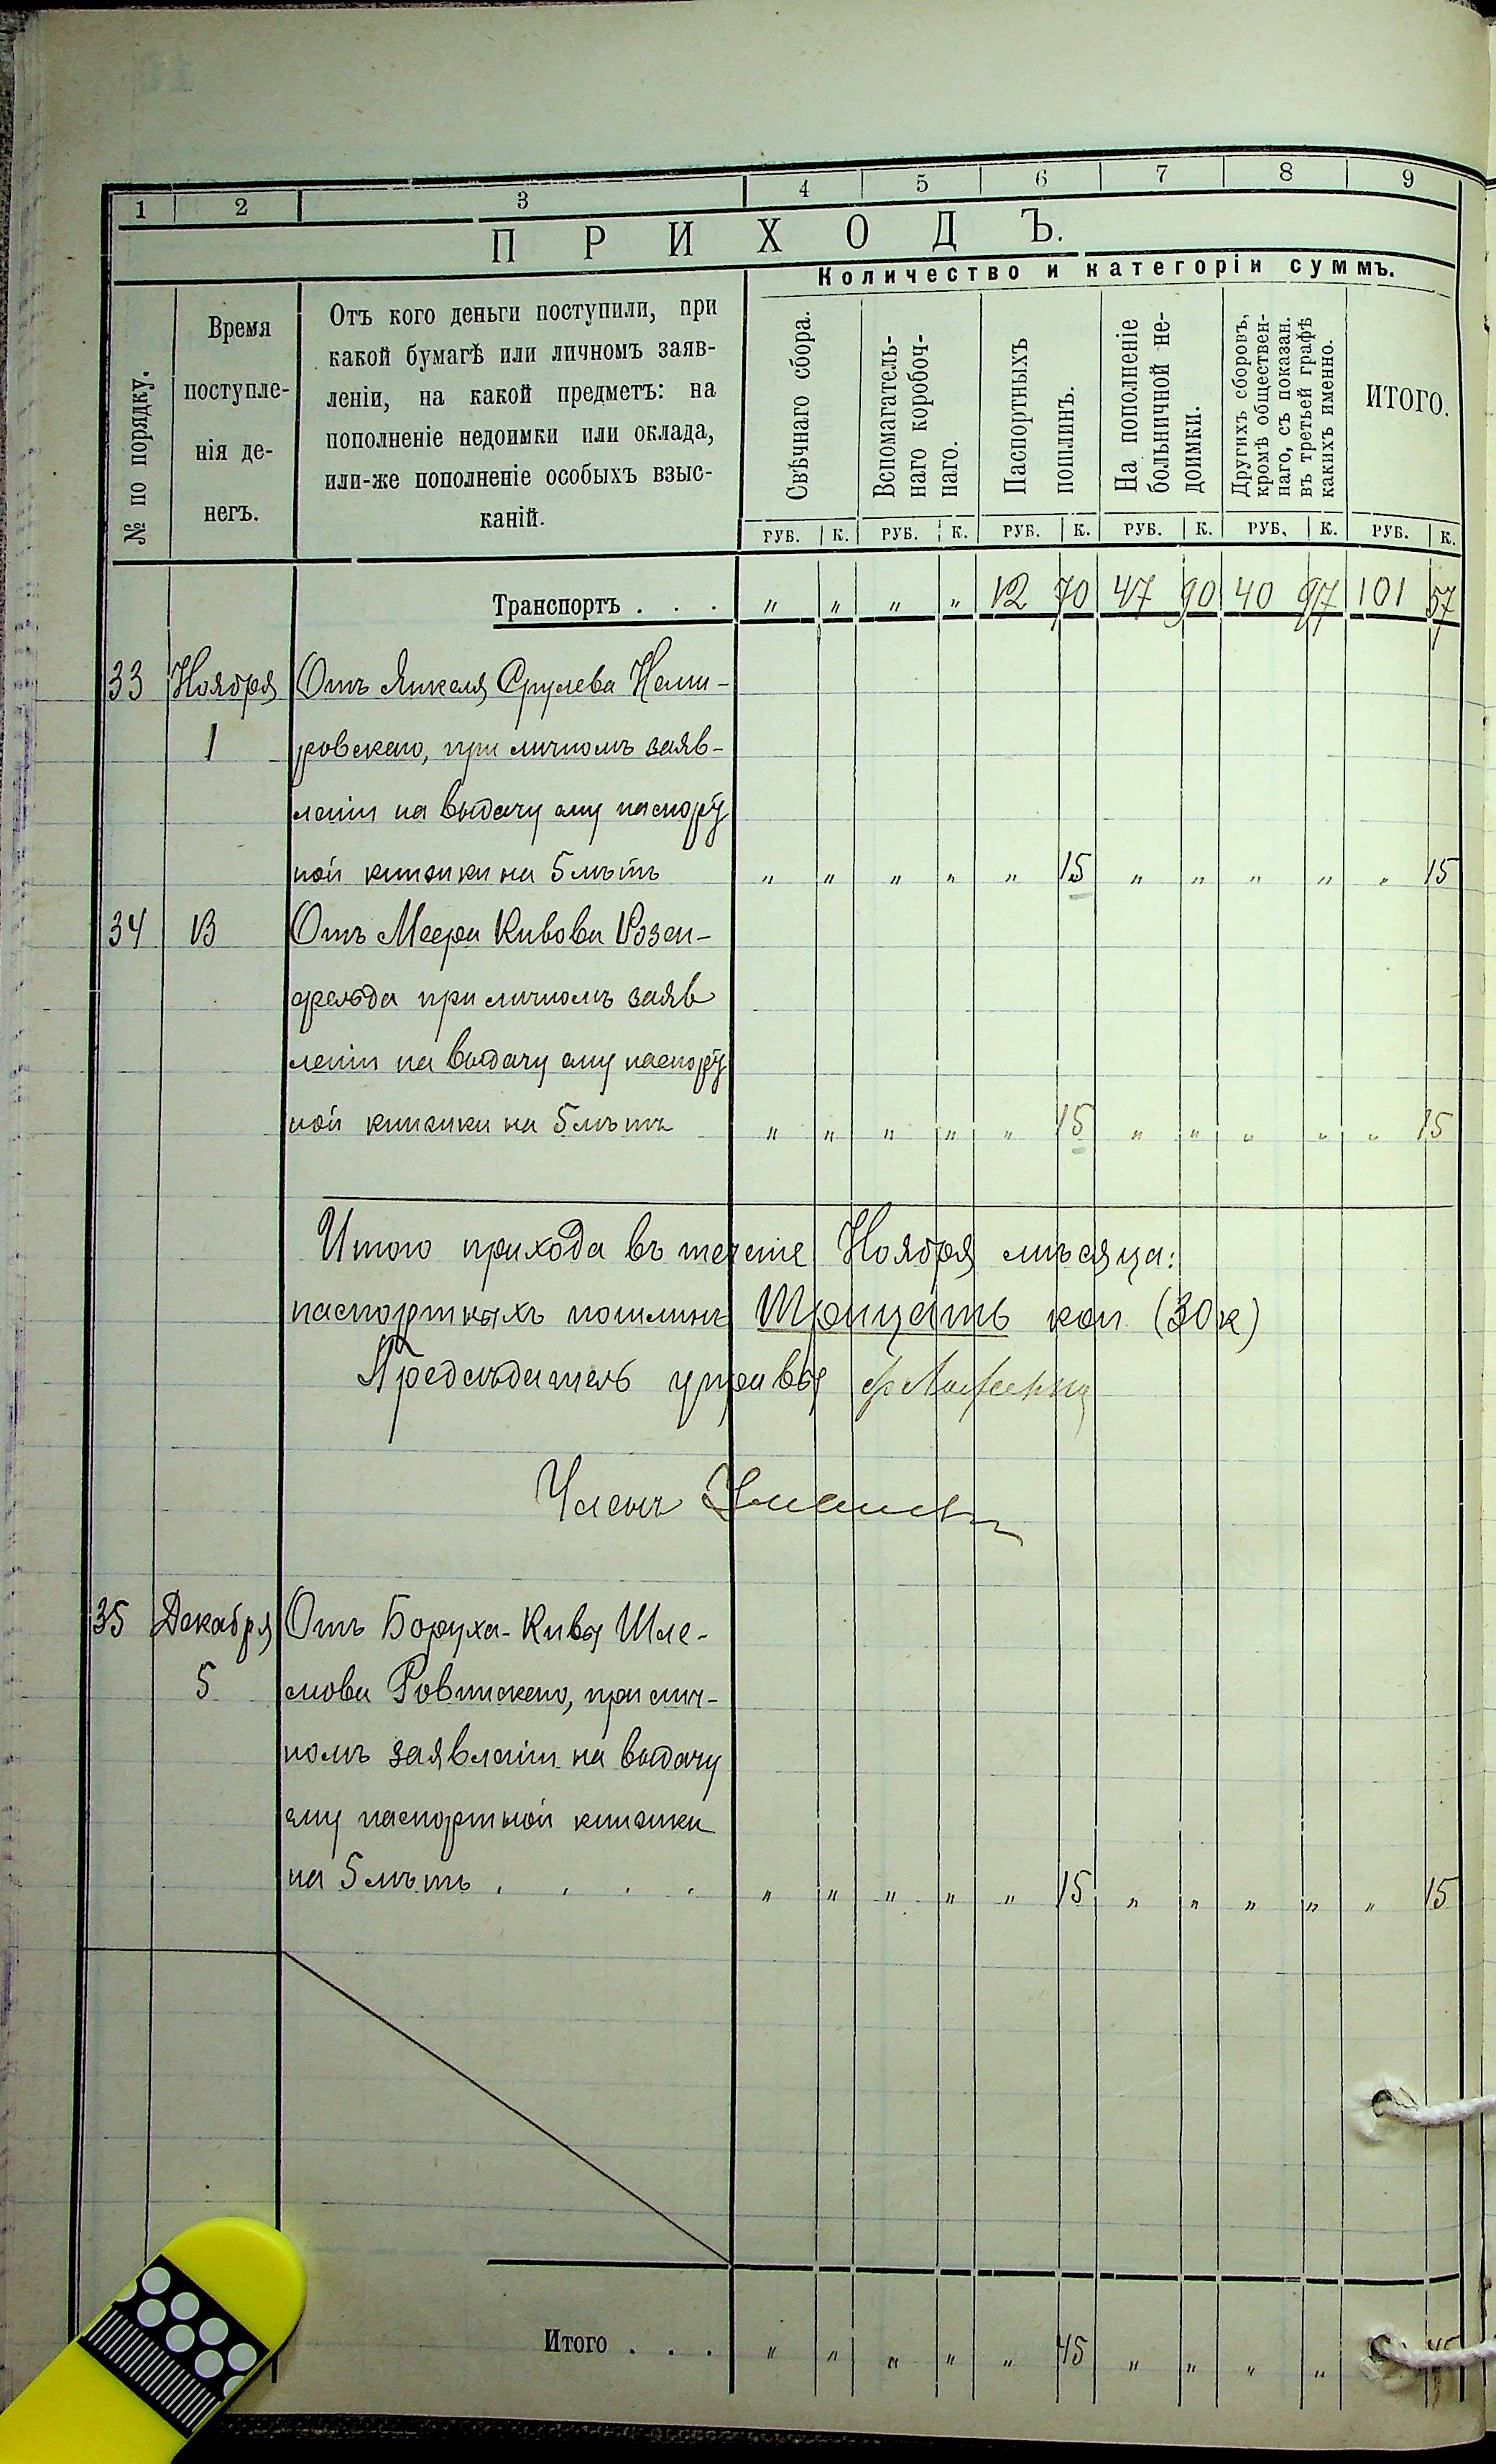 1 2 3 4 5 6 7 8 9
ПРИХОДЪ.
Количество и категоріи суммъ.
№ по порядку.
Время
поступле-
нія де-
негъ.
Отъ кого деньги поступили, при
какой бумагѣ или личномъ заяв-
леніи, на какой предметъ: на
пополненіе недоимки или оклада,
или-же пополненіе особыхъ взыс-
каній.
Свѣчнаго сбора.
Вспомагатель-
наго коробоч-
наго.
Паспортныхъ
пошлинъ.
На пополненіе
больничной не-
доимки.
Другихъ сборовъ,
кромѣ обществен-
наго, съ показан.
въ третьей графѣ
какихъ именно.
ИТОГО.
РУБ. К. РУБ. К. РУБ. К. РУБ. К. РУБ. К. РУБ. К.
Транспортъ . . . " " " " 12 70 47 90 40 97 101 57
33 Ноября Отъ Янкеля Срулева Неми-
1 ровскаго, при личномъ заяв-
леніи на выдачу ему паспорт
ной книжки на 5 лѣтъ " " " " " 15 " " " " " 15
34 13 Отъ Меера Кивова Розен-
фельда при личномъ заяв
леніи на выдачу ему паспорт
ной книжки на 5 лѣтъ " " " " " 15 " " " " " 15
Итого прихода въ теченіе Ноября мѣсяца:
паспортныхъ пошлинъ Трицать коп (30 к)
Предсѣдатель управы
Членъ
35 Декабря Отъ Боруха-Кивы Шле-
5 мова Ровинскаго, при лич-
номъ заявленіи на выдачу
ему паспортной книжки
на 5 лѣтъ . . . . " " " " " 15 " " " " " 15
Итого . . . " " " " " 45 " " " " 45